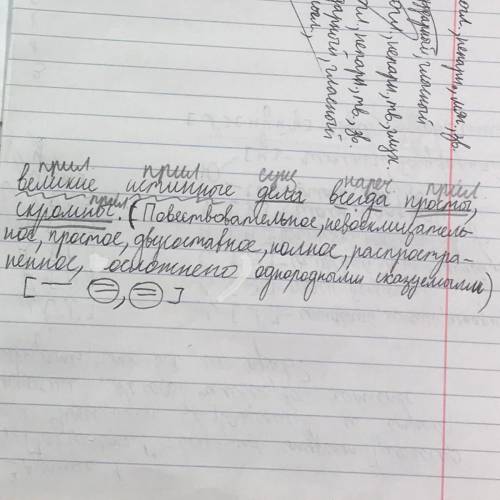 прил прил сущ нареч прил
великие истинные дела всегда просты,
прил
скромны. (Повествовательное, невосклицатель-
ное, простое, двусоставное, полное, распростра-
нённое, осложнено однородными сказуемыми)
[— =, =]
непарн, тв, зв.
гласный
непарн, тв, глух.
гласный